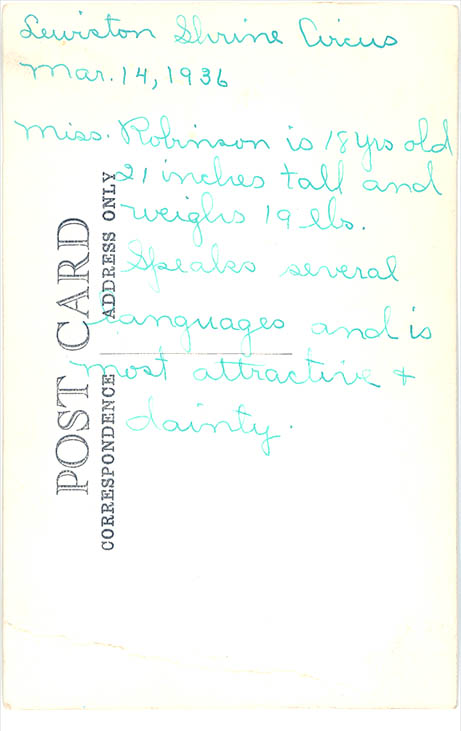 Lewiston Shrine Circus
Mar. 14, 1936
Miss. Robinson is 18 yrs old
21 inches tall and
weighs 19 lbs.
Speaks several
languages and is
most attractive +
dainty.
POST CARD
CORRESPONDENCE
ADDRESS ONLY